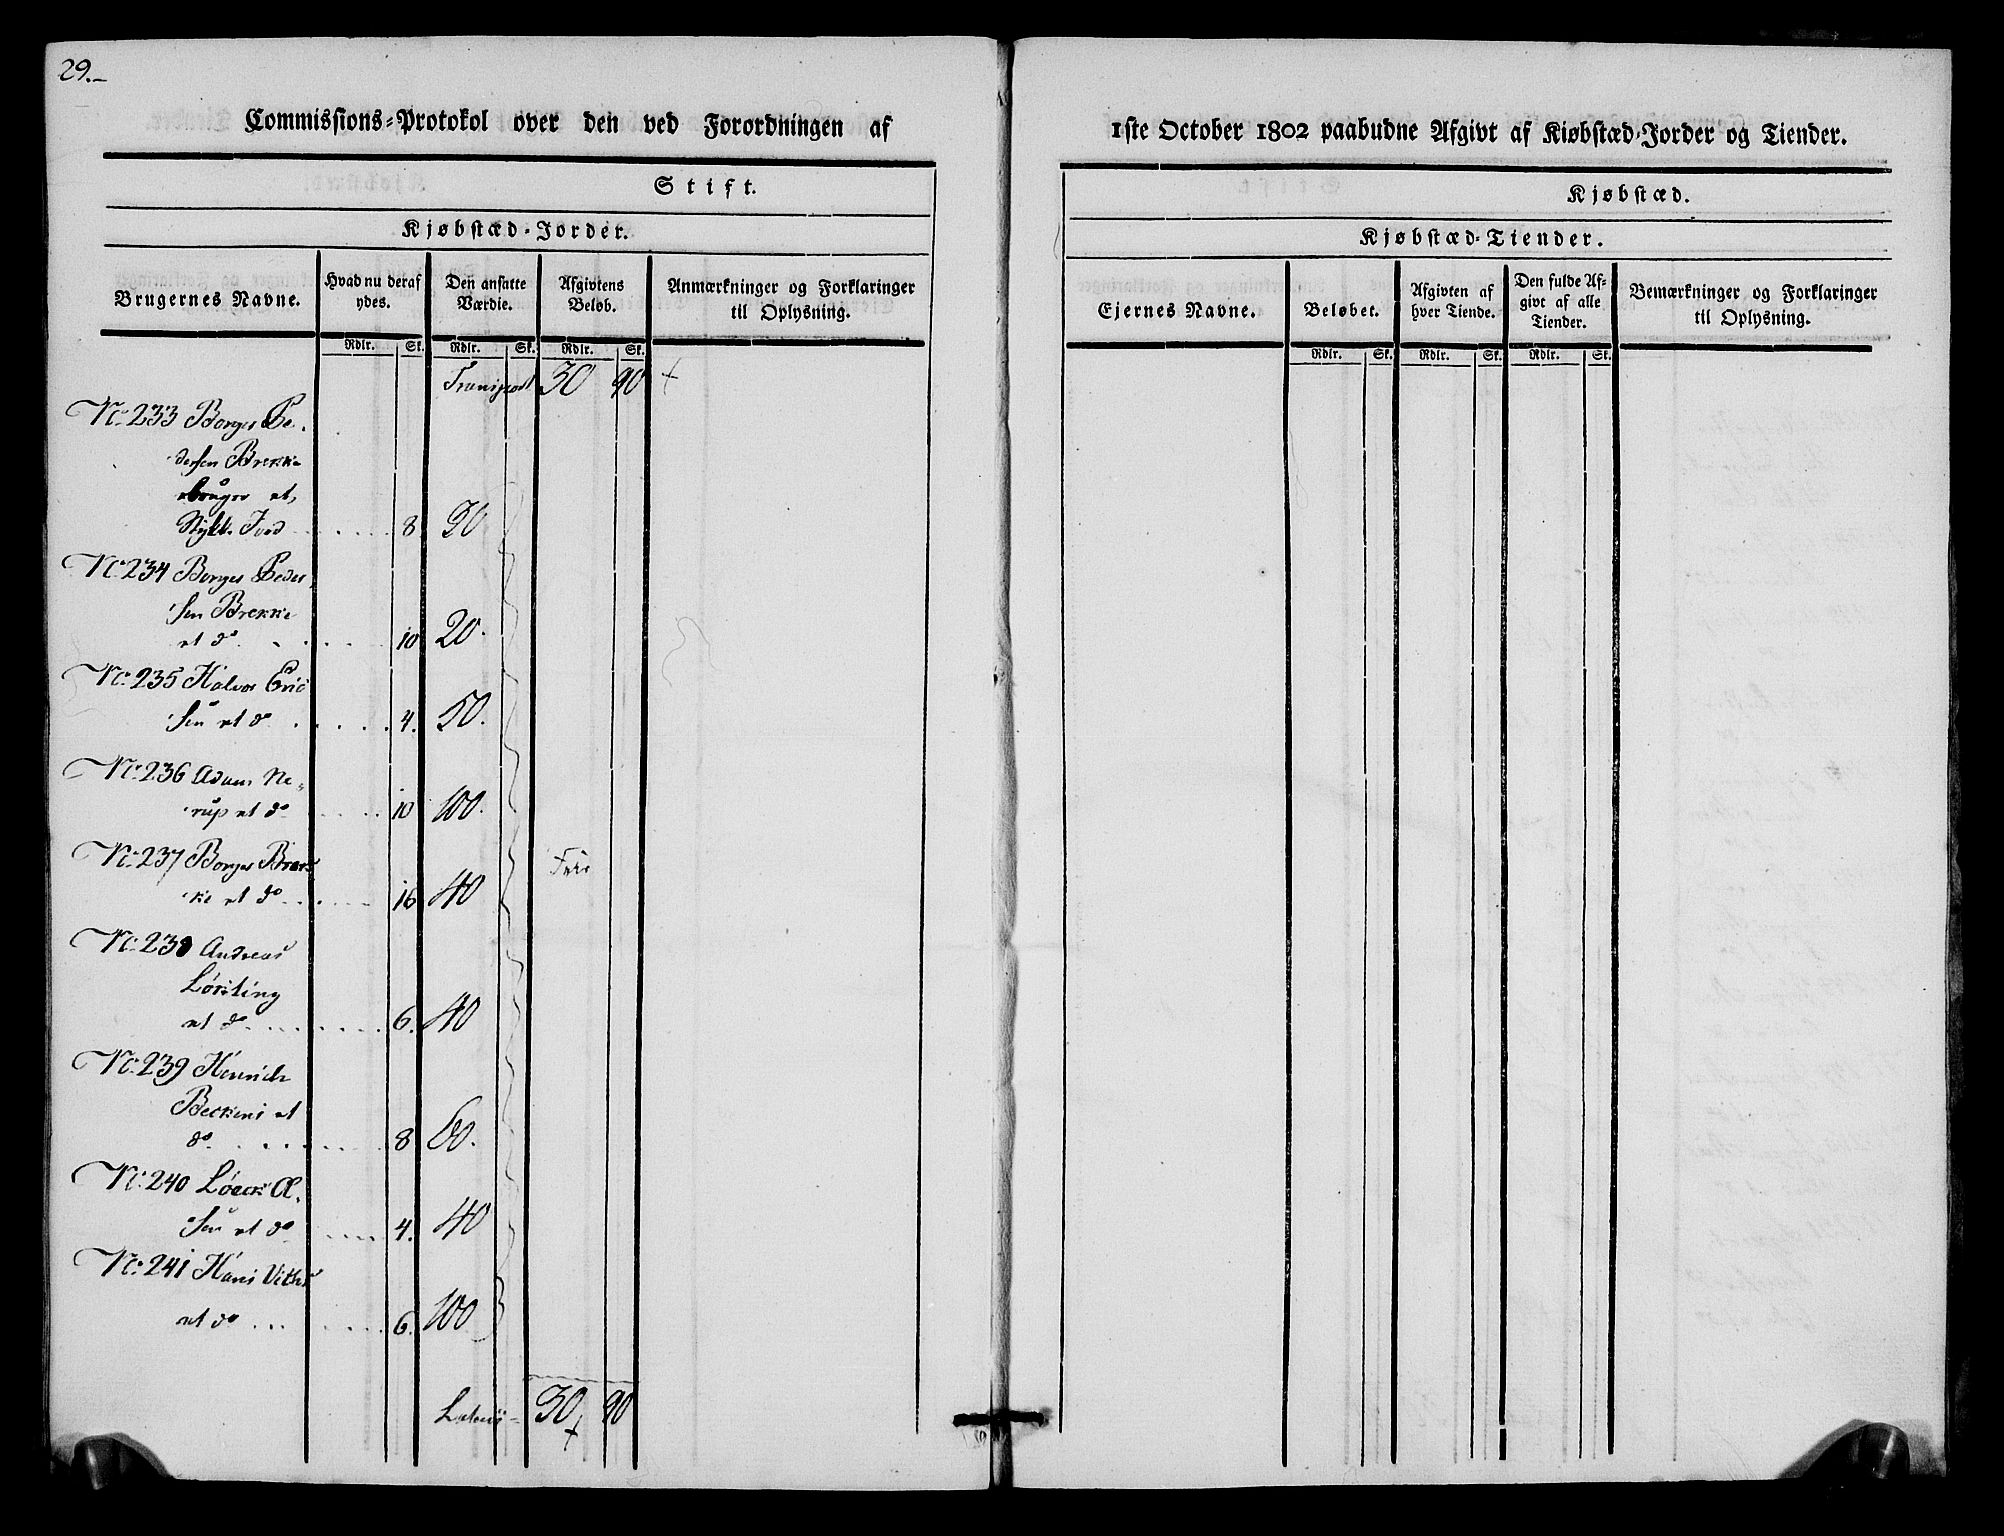 29.-
Commissions-Protokol over den ved Forordningen af
Stift.
Kjøbstæd-Jorder.
Brugernes Navne.
Hvad nu deraf ydes.
Den ansatte Værdie.
Afgivtens Beløb.
Anmærkninger og Forklaringer til Oplysning.
Rdlr. Sk. Rdlr. Sk. Rdlr. Sk.
Transport 30 90 +
No. 233 Borger Pe-
dersen Brekke
bruger et
Stykke Jord 8 30
No. 234 Borger Peder-
sen Brekke
et do 10 20.
No. 235 Halvor Eric
sen et do 4. 50.
No. 236 Adam Ne-
rup et do 10 100.
No. 237 Borger Brek
ke et do 16 40
No. 238 Andreas
et do 6. 40
No. 239 Henrich
Beckeni et
do 8 60.
No. 240
sen et do 4. 40
No. 241 Hans
et do 6. 100
Lateris 30 90
+
1ste October 1802 paabudne Afgivt af Kiøbstæd-Jorder og Tiender.
Kjøbstæd.
Kjøbstæd-Tiender.
Ejernes Navne.
Beløbet.
Afgivten af hver Tiende.
Den fulde Afgivt af alle Tiender.
Bemærkninger og Forklaringer til Oplysning.
Rdlr. Sk. Rdlr. Sk. Rdlr. Sk.